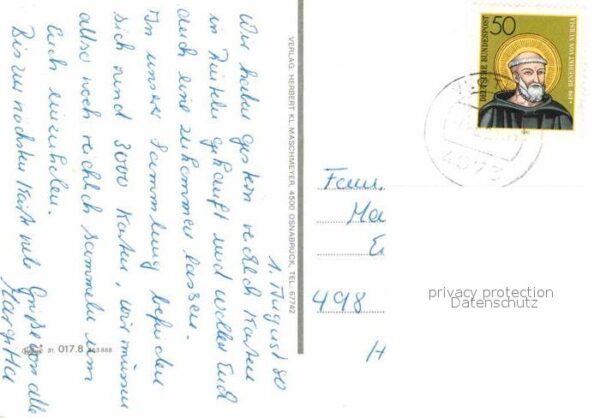 1. August 80
Wir haben gestern reichlich Karten
in Rinteln gekauft und wollen Euch
auch eine zukommen lassen.
In unserer Sammlung befinden
sich rund 3000 Karten, wir müssen
also noch reichlich sammeln um
Euch einzuholen.
Bis zur nächsten Karte viele Grüße von alle
VERLAG: HERBERT KL. MASCHMEYER, 4500 OSNABRÜCK, TEL. 67742
31. 017.8
50
DEUTSCHE BUNDESPOST
BENEDIKT VON NURSIA
Fam.
Ma
E
498
H
privacy protection
Datenschutz